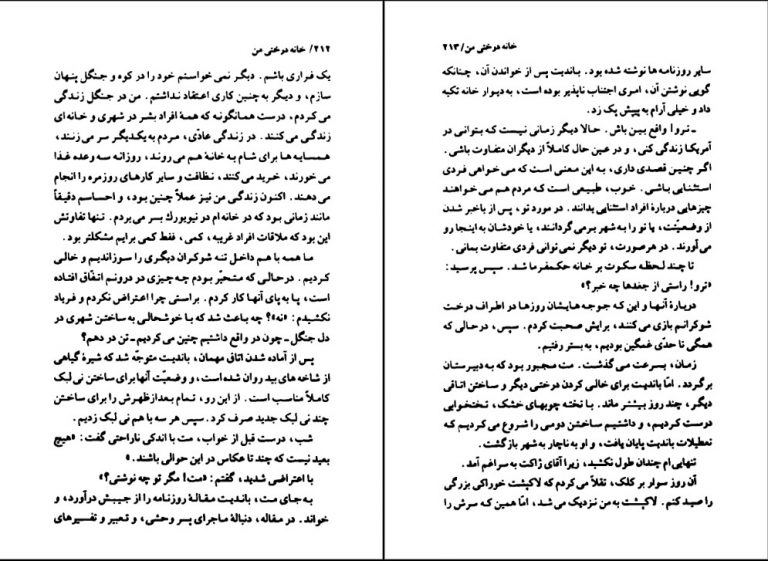 ۲۱۲/ خانه درختی من
یک فراری باشم. دیگر نمی خواستم خود را در کوه و جنگل پنهان
سازم، و دیگر به چنین کاری اعتقاد نداشتم. من در جنگل زندگی
می کردم، درست همانگونه که همهٔ افراد بشر در شهری و خانه ای
زندگی می کنند. در زندگی عادّی، مردم به یکدیگر سر می زنند،
همسایه ها برای شام به خانهٔ هم می روند، روزانه سه وعده غذا
می خورند، خرید می کنند، نظافت و سایر کارهای روزمره را انجام
می دهند. اکنون زندگی من نیز عملاً چنین بود، و احساسم دقیقاً
مانند زمانی بود که در خانه ام در نیویورك بسر می بردم. تنها تفاوتش
این بود که ملاقات افراد غریبه، کمی، فقط کمی برایم مشکلتر بود.
ما همه با هم داخل تنه شوکران دیگری را سوزاندیم و خالی
کردیم. درحالی که متحیّر بودم چه چیزی در درونم اتفّاق افتاده
است، پا به پای آنها کار کردم. براستی چرا اعتراض نکردم و فریاد
نکشیدم: «نه»؟ چه باعث شد که با خوشحالی به ساختن شهری در
دل جنگل ـ چون در واقع داشتیم چنین می کردیم ـ تن در دهم؟
پس از آماده شدن اتاق مهمان، باندیت متوجّه شد که شیرهٔ گیاهی
از شاخه های بید روان شده است، و وضعیّت آنها برای ساختن نی لبک
کاملاً مناسب است. از این رو، تمام بعدازظهرش را برای ساختن
چند نی لبک جدید صرف کرد. سپس هر سه با هم نی لبک زدیم.
شب، درست قبل از خواب، مت با اندکی ناراحتی گفت: «هیچ
بعید نیست که چند تا عکاس در این حوالی باشند.»
با اعتراضی شدید، گفتم: «مت! مگر تو چه نوشتی؟»
به جای مت، باندیت مقالهٔ روزنامه را از جیبش درآورد، و
خواند. در مقاله، دنبالهٔ ماجرای پسر وحشی، و تعبیر و تفسیرهای
خانه درختی من/ ۲۱۳
سایر روزنامه ها نوشته شده بود. باندیت پس از خواندن آن، چنانکه
گویی نوشتن آن، امری اجتناب ناپذیر بوده است، به دیوار خانه تکیه
داد و خیلی آرام به پیپش پک زد.
ـ ترو! واقع بین باش. حالا دیگر زمانی نیست که بتوانی در
آمریکا زندگی کنی، و در عین حال کاملاً از دیگران متفاوت باشی.
اگر چنین قصدی داری، به این معنی است که می خواهی فردی
استثنایی باشی. خوب، طبیعی است که مردم هم می خواهند
چیزهایی دربارهٔ افراد استثنایی بدانند. در مورد تو، پس از باخبر شدن
از وضعیّتت، یا تو را به شهر برمی گردانند، یا خودشان به اینجا رو
می آورند. در هرصورت، تو دیگر نمی توانی فردی متفاوت بمانی.
تا چند لحظه سکوت بر خانه حکمفرما شد. سپس پرسید:
«ترو! راستی از جغدها چه خبر؟»
دربارهٔ آنها و این که جوجه هایشان روزها در اطراف درخت
شوکرانم بازی می کنند، برایش صحبت کردم. سپس، در حالی که
همگی تا حدّی غمگین بودیم، به بستر رفتیم.
زمان، بسرعت می گذشت. مت مجبور بود که به دبیرستان
برگردد. امّا باندیت برای خالی کردن درختی دیگر و ساختن اتاقی
دیگر، چند روز بیشتر ماند. با تخته چوبهای خشک، تختخوابی
درست کردیم، و داشتیم ساختن دومی را شروع می کردیم که
تعطیلات باندیت پایان یافت، و او به ناچار به شهر بازگشت.
تنهایی ام چندان طول نکشید، زیرا آقای ژاکت به سراغم آمد.
آن روز سوار بر کلک، تقلاّ می کردم که لاکپشت خوراکی بزرگی
را صید کنم. لاکپشت به من نزدیک می شد، امّا همین که سرش را